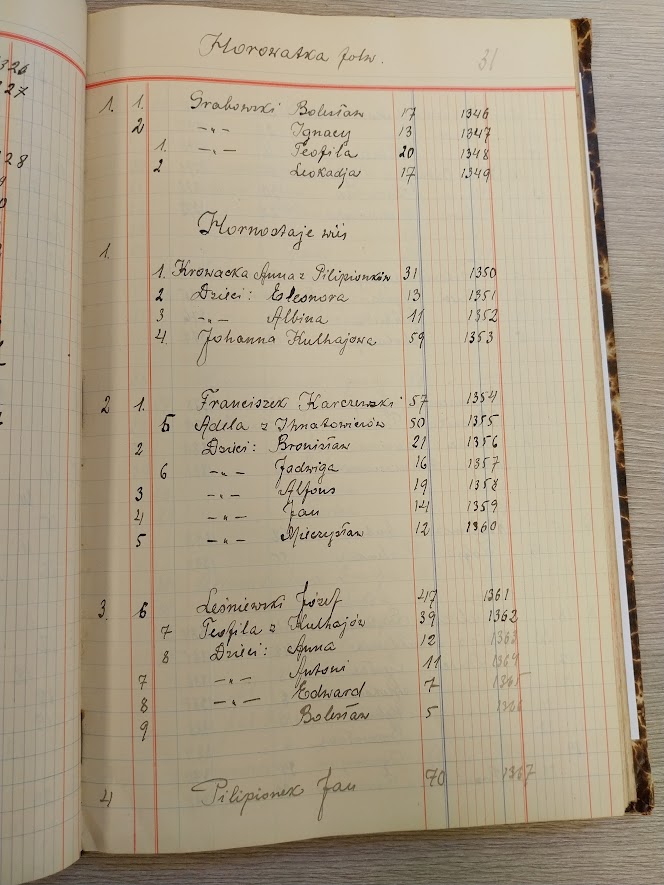 Horowatka folw. 31
1. 1. Grabowski Bolesław 17 1346
2 -„- Ignacy 13 1347
1. -„- Teofila 20 1348
2 Leokadja 17 1349
Hornostaje wieś
1.
1. Krowacka Anna z Pilipionków 31 1350
2 Dzieci: Eleonora 13 1351
3 -„- Albina 11 1352
4. Johanna Kulhajowa 59 1353
2 1. Franciszek Karczewski 57 1354
5 Adela z Ihnatowiczów 50 1355
2 Dzieci: Bronisław 21 1356
6 -„- Jadwiga 16 1357
3 -„- Alfons 19 1358
4 -„- Jan 14 1359
5 -„- Mieczysław 12 1360
3. 6 Leśniewski Józef 47 1361
7 Teofila z Kulhajów 39 1362
8 Dzieci: Anna 12 1363
7 -„- Antoni 11 1364
8 -„- Edward 7 1365
9 Bolesław 5 1366
4 Pilipionek Jan 70 1367
326
27
28
9
0